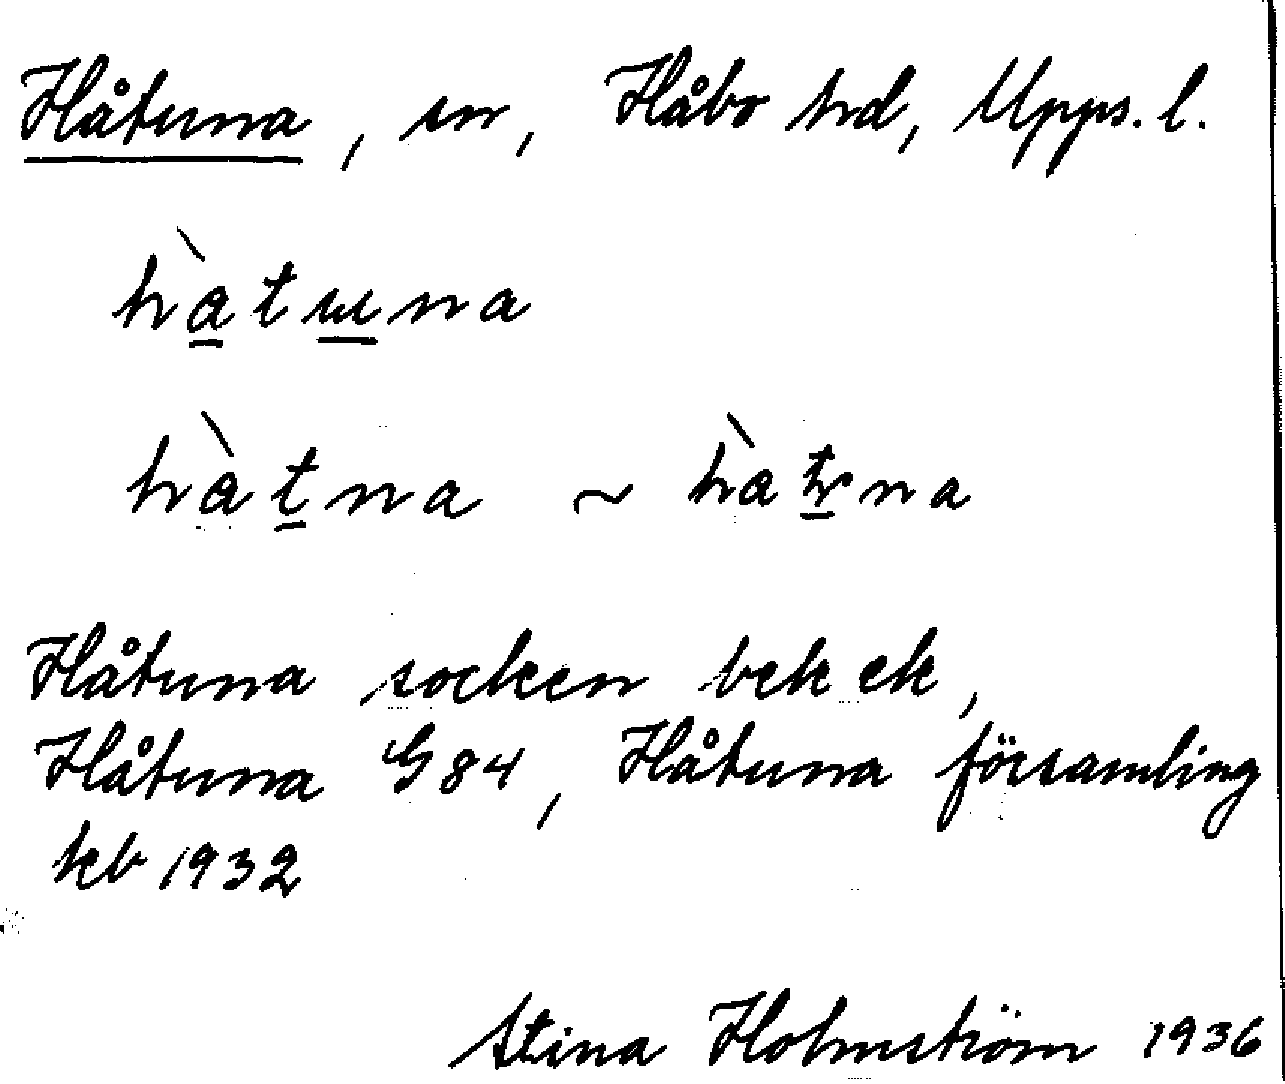 Håtuna, sn, Håbo hd, Upps. l.
hàtɯna
hàtna ~ hàtrna
Håtuna socken bek ek,
Håtuna G84, Håtuna församling
kb 1932
Stina Holmström 1936